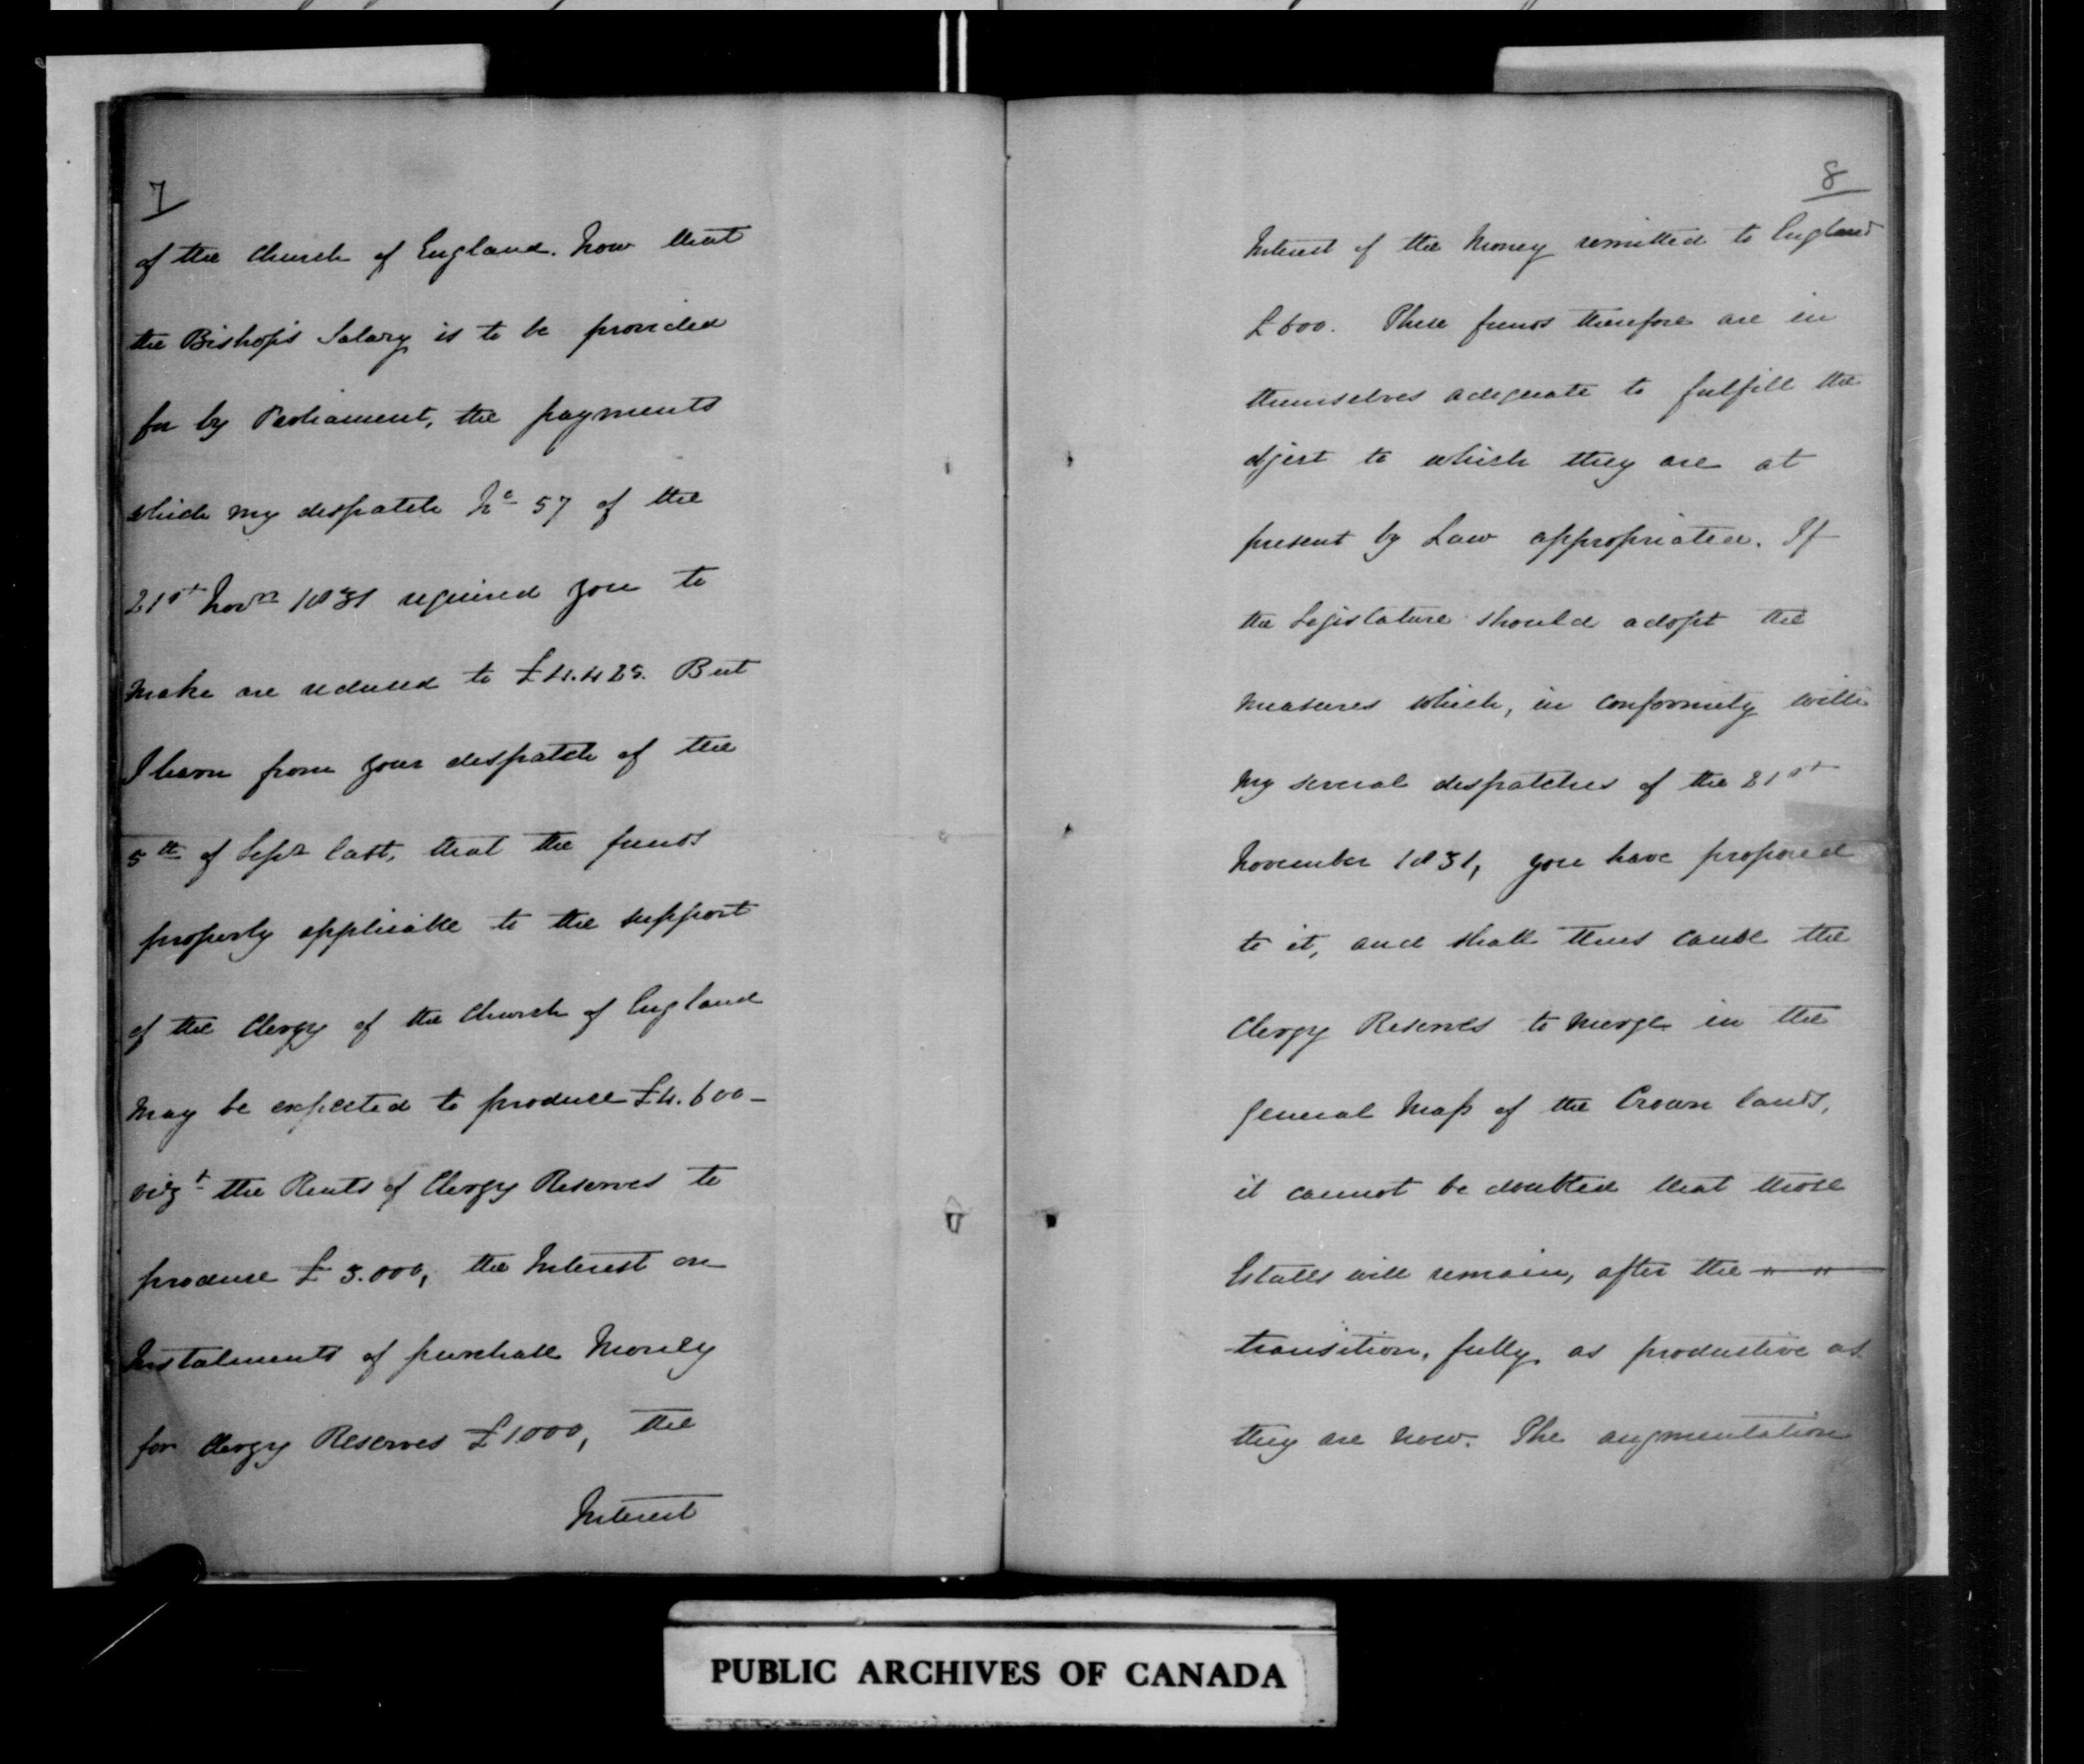 7
of the Church of England. Now that
the Bishop's Salary is to be provided
for by Parliament, the payments
which my despatch No 57 of the
21st Novr 1831 required you to
make are reduced to £4.425. But
I learn from your despatch of the
5th of Sepr last, that the funds
properly applicable to the support
of the Clergy of the Church of England
may be expected to produce £4.600—
vizt the Rents of Clergy Reserves to
produce £3.000, the Interest on
Instalments of purchase Money
for Clergy Reserves £1000, the
Interest
8
Interest of the Money remitted to England
£600. These funds therefore are in
themselves adequate to fulfill the
object to which they are at
present by Law appropriated. If
the Legislature should adopt the
measures which, in conformity with
my several despatches of the 21st
November 1831, you have proposed
to it, and shall thus cause the
Clergy Reserves to merge in the
general Mass of the Crown lands,
it cannot be doubted that those
Estates will remain, after the — " — " —
transition, fully as productive as
they are now. The augmentation
PUBLIC ARCHIVES OF CANADA